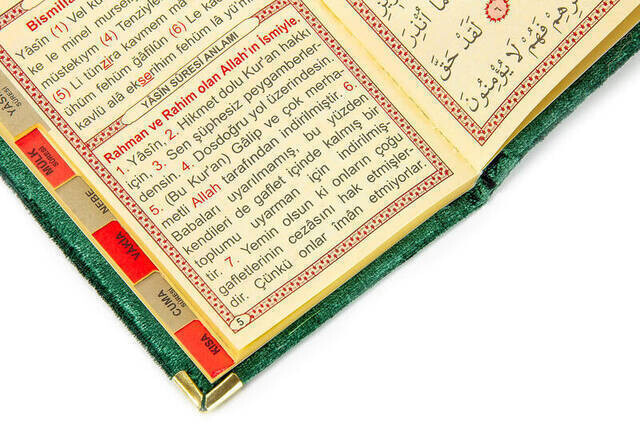 Bismilla
Yâsîn (1) Vel kur
ke le minel murseli
müstekıym (4) Tenziylel
(5) Li tünzira kavmem mâ
ühüm fehüm ğâfilûn (6) Le kad
kavlü alâ ekserihim fehüm lâ yü'mi
YÂSÎN SÛRESİ ANLAMI
Rahman ve Rahim olan Allah'ın ismiyle.
1. Yâsîn, 2. Hikmet dolu Kur'an hakkı
için, 3. Sen şüphesiz peygamberler-
densin. 4. Dosdoğru yol üzerindesin.
5. (Bu Kur'an) Gâlip ve çok merha-
metli Allah tarafından indirilmiştir. 6.
Babaları uyarılmamış, bu yüzden
kendileri de gaflet içinde kalmış bir
toplumu uyarman için indirilmiş-
tir. 7. Yemin olsun ki onların çoğu
gafletlerinin cezâsını hak etmişler-
dir. Çünkü onlar îmân etmiyorlar.
5
لَقَدْ حَقَّ
فَهُمْ لَا يُؤْمِنُونَ
YÂSÎN
SÛRESİ
MÜLK
SÛRESİ
NEBE
VÂKIA
CUMA
SÛRESİ
KISA